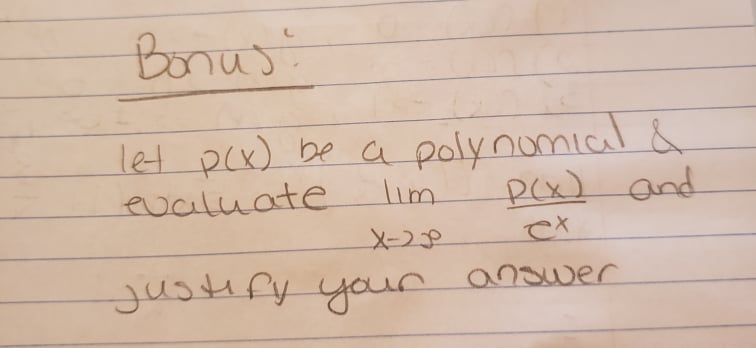 Bonus:
let p(x) be a polynomial &
evaluate lim p(x) and
x→∞ e^x
justify your answer